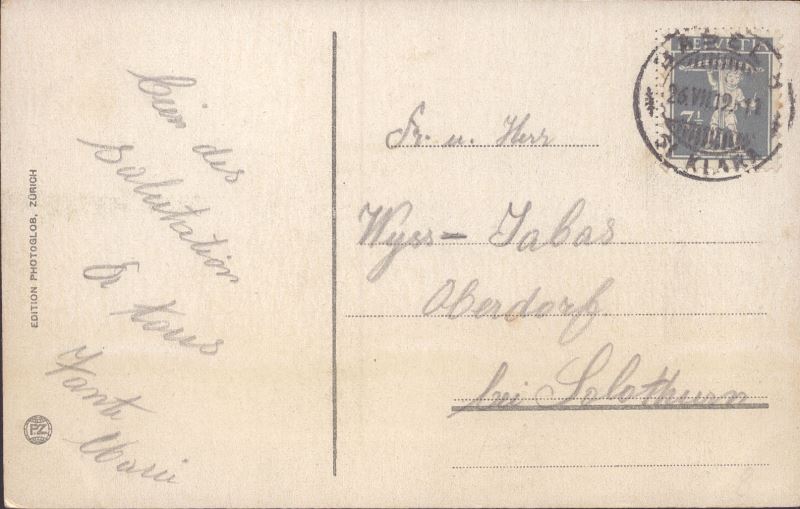 Bien des
Salutation
à tous
Tante
Marie
EDITION PHOTOGLOB, ZÜRICH
PZ
HELVETIA
7½
BASEL
26.VII.12.-11
ST. KLARA
Fr. u. Herr
Wyss-Jabas
Oberdorf
bei Solothurn